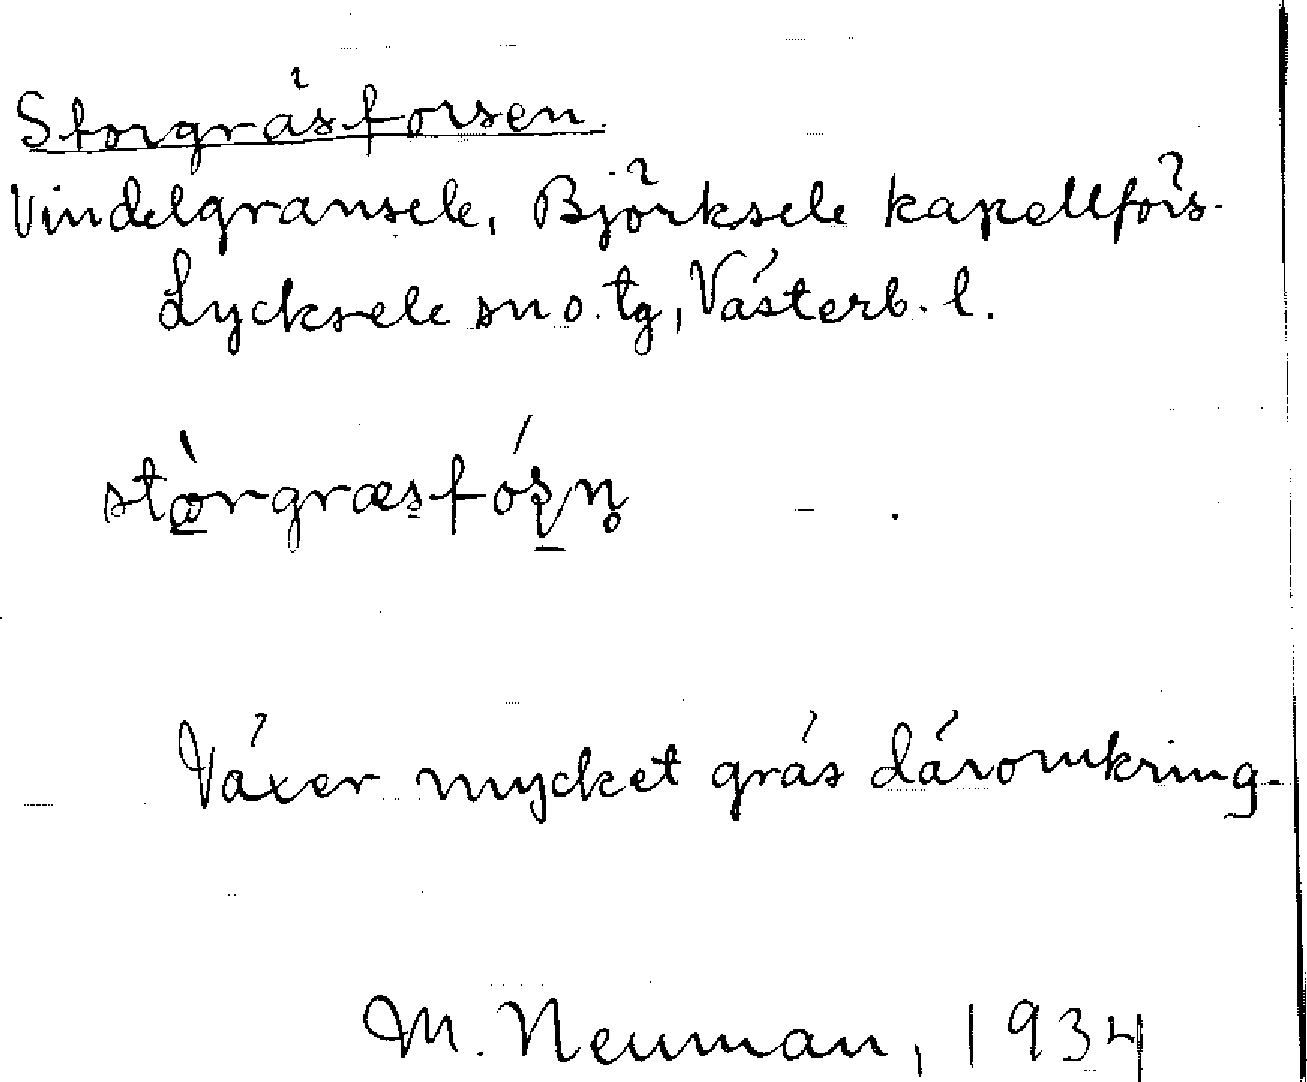 Storgräsforsen.
Vindelgransele, Björksele kapellförs.
Lycksele sn o. tg, Västerb. l.
Växer mycket gräs däromkring.
M. Neuman, 1934